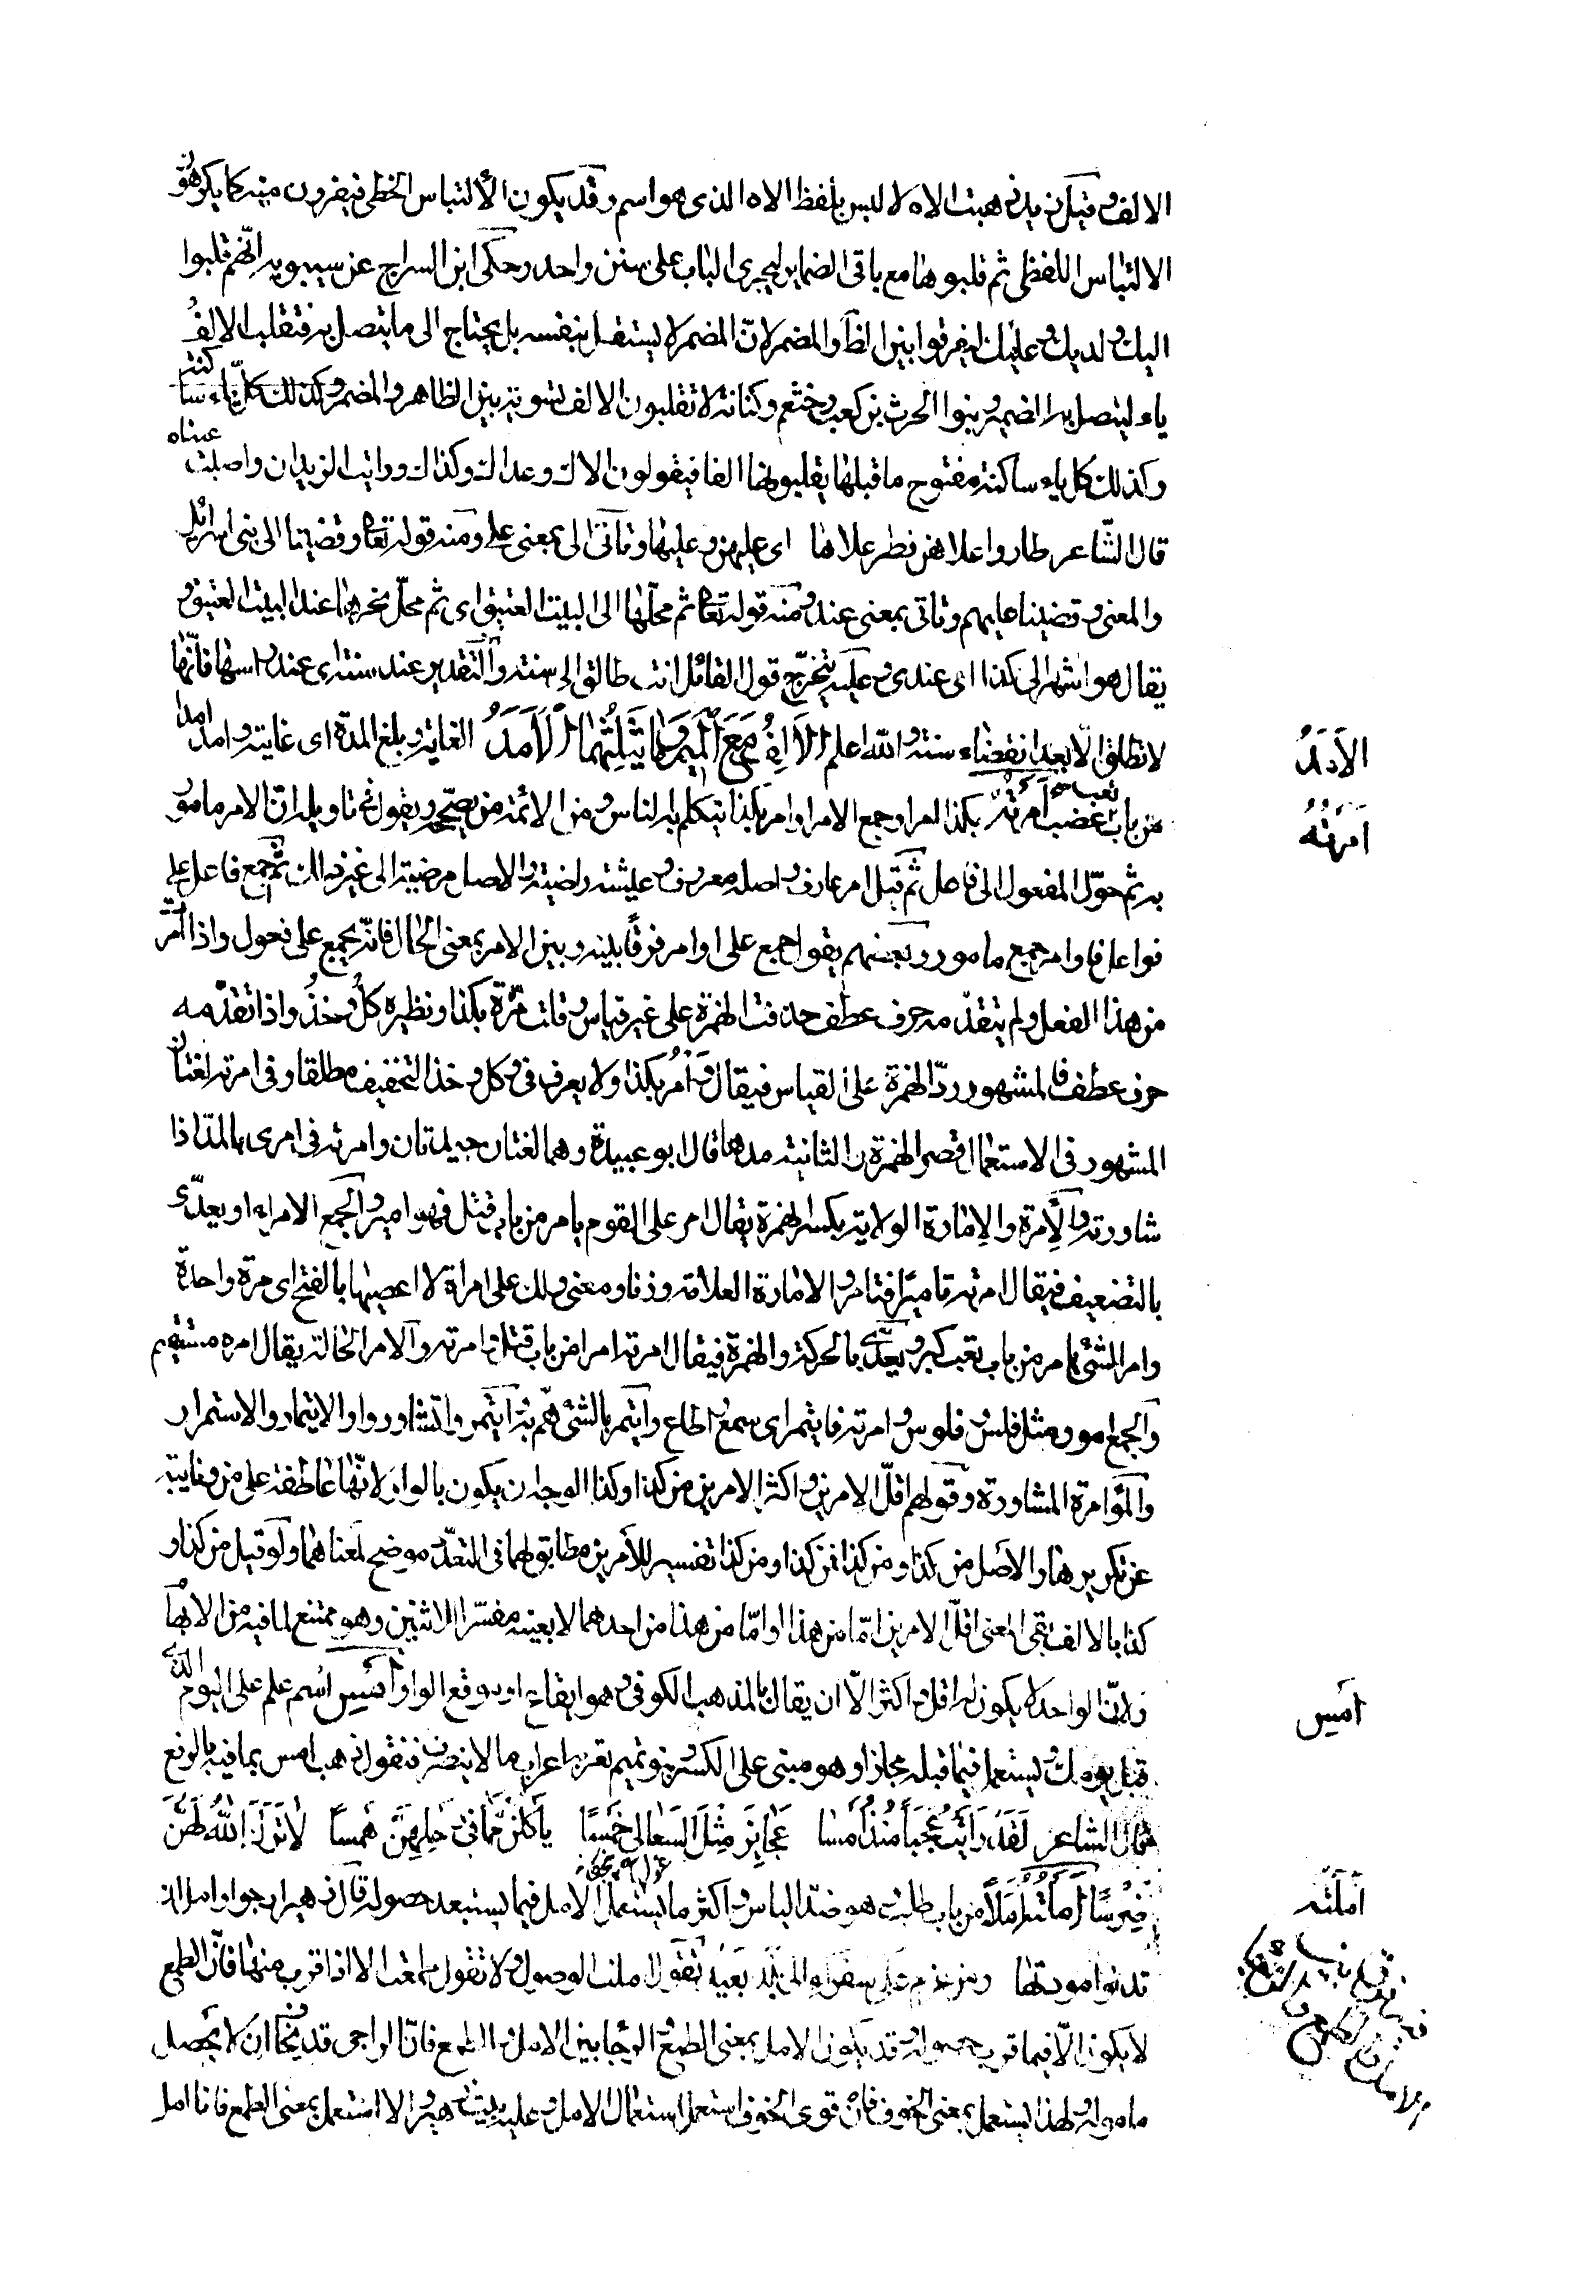 الالف وقيل زيد ذهبت الاه لالبس بلفظ الاه الذى هو اسم وقد يكون الالتباس الخطى فيفرون منه كما يكرهون
الالتباس اللفظى ثم قلبوها مع باقى الضماير ليجرى الباب على سنن واحد وحكى ابن السراج عن سيبويه انهم قلبوا
اليك ولديك وعليك ليفرقوا بين الظا والمضمر لانّ المضمر لا يستقل بنفسه بل يحتاج الى ما يتصل به فتقلب الالف
ياء ليتصل به الضمير وبنوا الحرث بن كعب وخثعم وكنانة لا تقلبون الالف تسوية بين الظاهر والمضمر وكذلك كل ياء ساكنة
وكذلك كل ياء ساكنة مفتوح ما قبلها يقلبونها الفا فيقولون الاك وعداك وكذاك ورايت الزيدان واصلت عيناه
قال الشاعر طاروا علاهن فطر علاها اى عليهن وعليها وتأتى الى بمعنى على ومنه قوله تعالى وقضينا الى بنى اسرائيل
والمعنى وقضينا عليهم وتاتى بمعنى عند ومنه قوله تعالى ثم محلها الى البيت العتيق اى ثم محلّ نحرها عند البيت العتيق و
يقال هو اشهر الى كذا اى عندى وعليه يتخرّج قول القائل انت طالق الى سنة والتقدير عند سنة اى عند راسها فانها
لا تطلق الّا بعد انقضاء سنة والله اعلم الالف مع الميم وما يثلثهما الامد الغاية وبلغ المدة اى غايته وامد امدا
من باب تعب غضب امرته بكذا امرا وجمع الامر اوامر هكذا يتكلم به الناس ومن الائمة من يصححه ويقول فى تاويل انّ الامر مامور
به ثم حوّل المفعول الى فاعل ثم قيل امر عارف واصله معروف وعيشة راضية والاصل مرضية الى غير ذلك ثم جمع فاعل على
فواعل فاوامر جمع مامور وبعضهم يقول جمع على اوامر فرقًا بينه وبين الامر بمعنى الحال فانّه يجمع على فعول واذا امرت
من هذا الفعل ولم يتقدّمه حرف عطف حذفت الهمزة على غير قياس وقلت مُرْهُ بكذا ونظيره كُلْ وخذ واذا تقدّمه
حرف عطف فالمشهور ردّ الهمزة على القياس فيقال وأمر بكذا ولا يعرف فى كل وخذ الا التخفيف مطلقا وفى امرته لغتان
المشهور فى الاستعمال قصر الهمزة والثانية مدها قال ابو عبيدة وهما لغتان جيدتان وامرته فى امرى بالمدّ اذا
شاورته والإمرة والإمارة الولاية بكسر الهمزة يقال امر على القوم يامر من باب قتل فهو امير والجمع الامراء ويعدّى
بالتضعيف فيقال امرته تاميرًا فتامر والامارة العلامة وزنا ومعنى ولك على امرة لا اعصيها بالفتح اى مرة واحدة
وامر الشئ يامر من باب تعب كبر ويعدّى بالحركة والهمزة فيقال امرته امرا من باب قتل وامرته والامر الحالة يقال امره مستقيم
والجمع امور مثل فلس وفلوس وامرته فايتمر اى سمع واطاع وايتمر بالشئ همّ به وايتمروا تشاوروا والايتمار والاستمرار
والمؤامرة المشاورة وقولهم اقلّ الامرين واكثر الامرين من كذا وكذا الوجه ان يكون بالواو لانّها عاطفة على من ونايبة
عن تكريرها والاصل من كذا ومن كذا فمن كذا ومن كذا تفسير للأمرين مطابق لهما فى التعدّد موضح لمعناهما ولو قيل من كذا و
كذا بالالف بقى المعنى اقلّ الامرين امّا من هذا وامّا من هذا من احدهما لا بعينه مفسّرا للاثنين وهو ممتنع لما فيه من الابهام
ولانّ الواحد لا يكون له اقل واكثر الّا ان يقال بالمذهب الكوفى وهو ايقاع او موقع الواو أَمسِ اسم علم على اليوم الذى
قبل يومك ويستعمل فيما قبله مجازا وهو مبنى على الكسر وبنو تميم تعربه اعراب ما لا ينصرف فتقول ذهب امس بما فيه بالرفع
قال الشاعر لقد رَايتُ عَجَبًا مُنذُ أَمسا عجَايِزَ مِثْلَ السَعالِى خَمْسًا يأكُلْنَ مَا فى رَحلِهِنَّ هَمسًا لا تَرَكَ اللهُ لَهُنَّ
ضِرْسًا أَمَلْتُه أَمَلاً من باب طلب وهو ضد الياس واكثر ما يستعمل الامل فيما يستبعد حصوله قال زهير ارجو وامل ان
تدنو مودتها ومن عزم على سفر الى بلد بعيد يَقُول املت الوصول ولا تقول طمعت الا اذا قرب منها فانّ الطمع
لا يكون الّا فيما قرب حصوله وقد يكون الامل بمعنى الطمع والرجا بين الامل والطمع فانّ الراجى قد يخاف ان لا يحصل
مامولة ولهذا يستعمل بمعنى الخوف فاذا قوى الخوف استعمل استعمال الامل وعليه بيت زهير والا استعمل بمعنى الطمع فانا امل
الأمَدُ
أمرتُهُ
أَمسِ
أَملَتُه